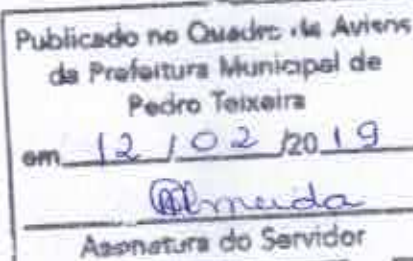 Publicado no Quadro de Avisos
da Prefeitura Municipal de
Pedro Teixeira
em 12 / 02 /2019
Almeida
Assinatura do Servidor